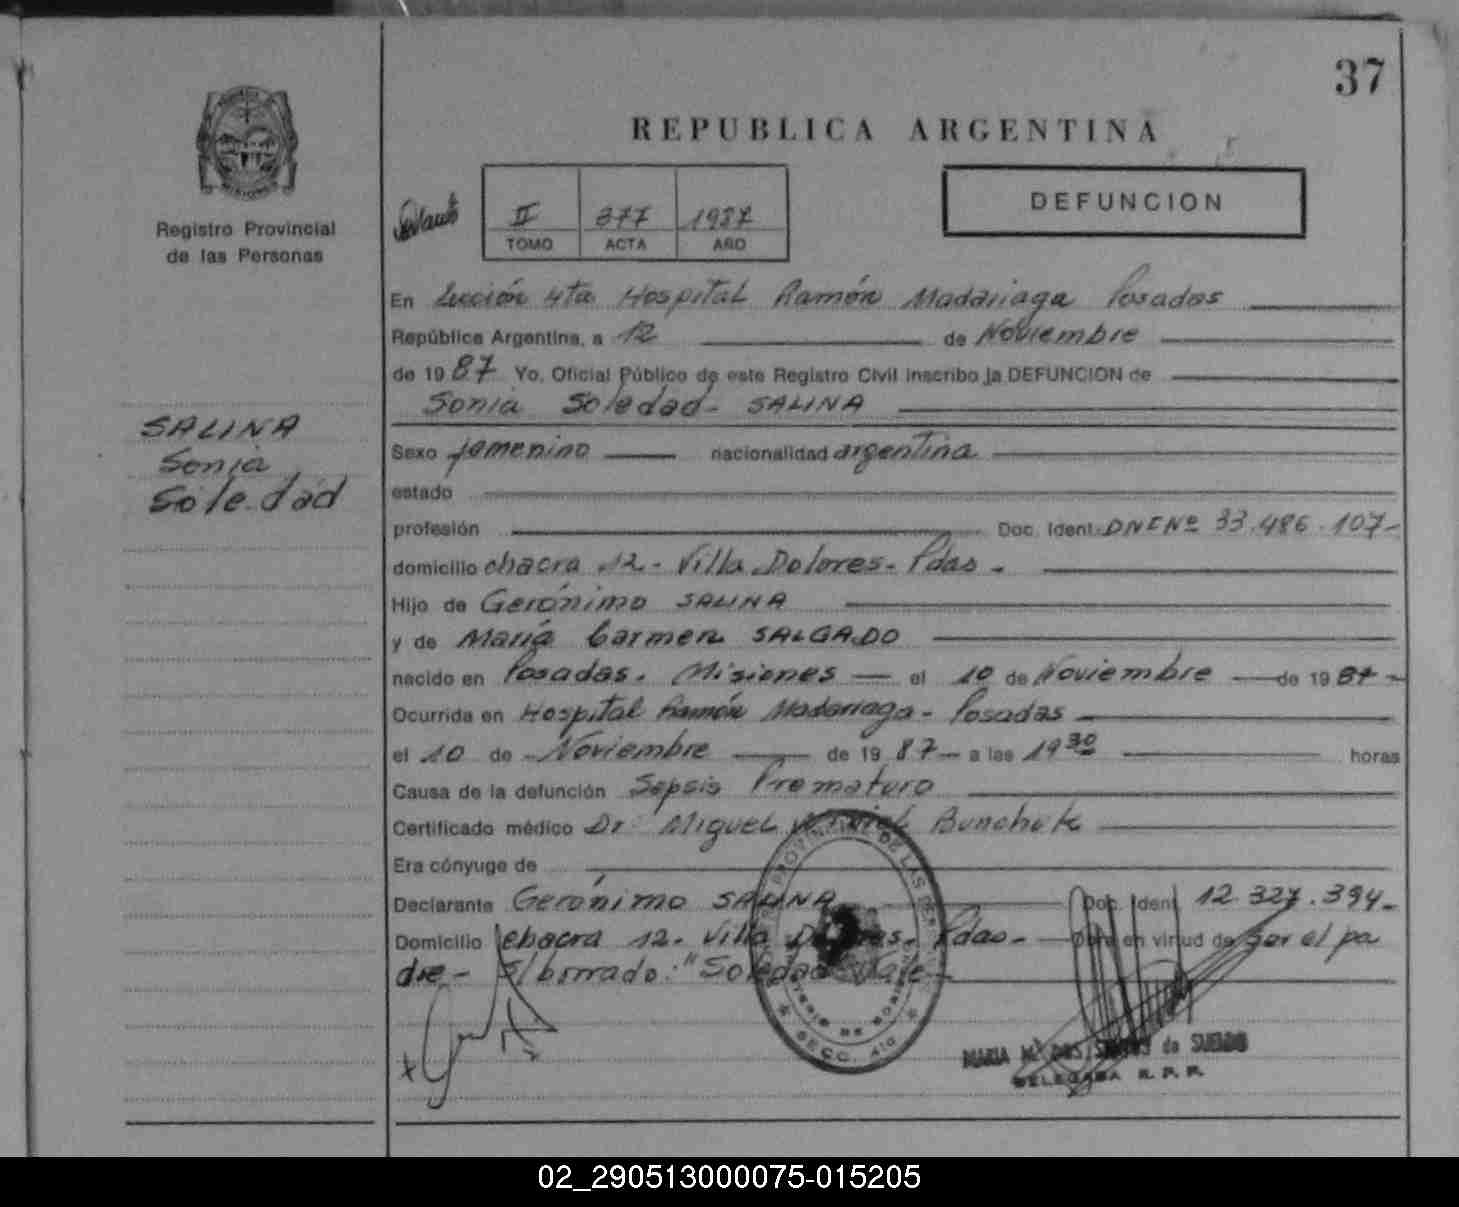 37
REPUBLICA ARGENTINA
Registro Provincial
de las Personas
II 377 1987
TOMO ACTA AÑO
DEFUNCION
En Sección 4ta Hospital Ramón Madariaga Posadas
República Argentina, a 12 de Noviembre
de 1987 Yo, Oficial Público de este Registro Civil inscribo la DEFUNCION de
Sonia Soledad - SALINA
SALINA
Sonia
Soledad
Sexo femenino nacionalidad argentina
estado
profesión Doc. Ident. DNI Nº 33.486.107-
domicilio chacra 12 - Villa Dolores - Pdas -
Hijo de Gerónimo SALINA
y de María Carmen SALGADO
nacido en Posadas. Misiones el 10 de Noviembre de 1987-
Ocurrida en Hospital Ramón Madariaga - Posadas
el 10 de Noviembre de 1987 a las 19 30 horas
Causa de la defunción Sepsis Prematuro
Certificado médico Dr Miguel
Era cónyuge de
Declarante Gerónimo SALINA Doc. Ident. 12.327.394-
Domicilio chacra 12 - Villa Dolores - Pdas - Obra en virtud de ser el pa
dre - S/borrado: "Soledad" Vale -
MARIA Mª DOS SANTOS de SUELDO
DELEGADA R. P. P.
02_290513000075-015205